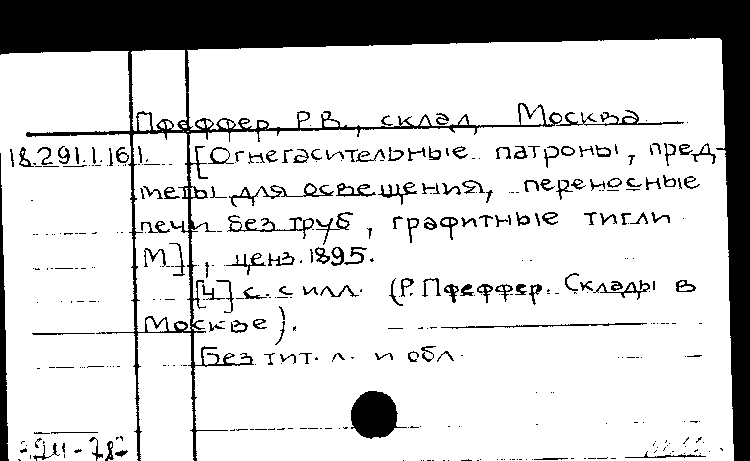 Пфеффер, Р.В., склад, Москва
18.291.1.161. [Огнегасительные патроны, пред-
меты для освещения, переносные
печи без труб, графитные тигли
М], ценз. 1895.
[4] с. с илл. (Р. Пфеффер. Склады в
Москве).
Без тит. л. и обл.